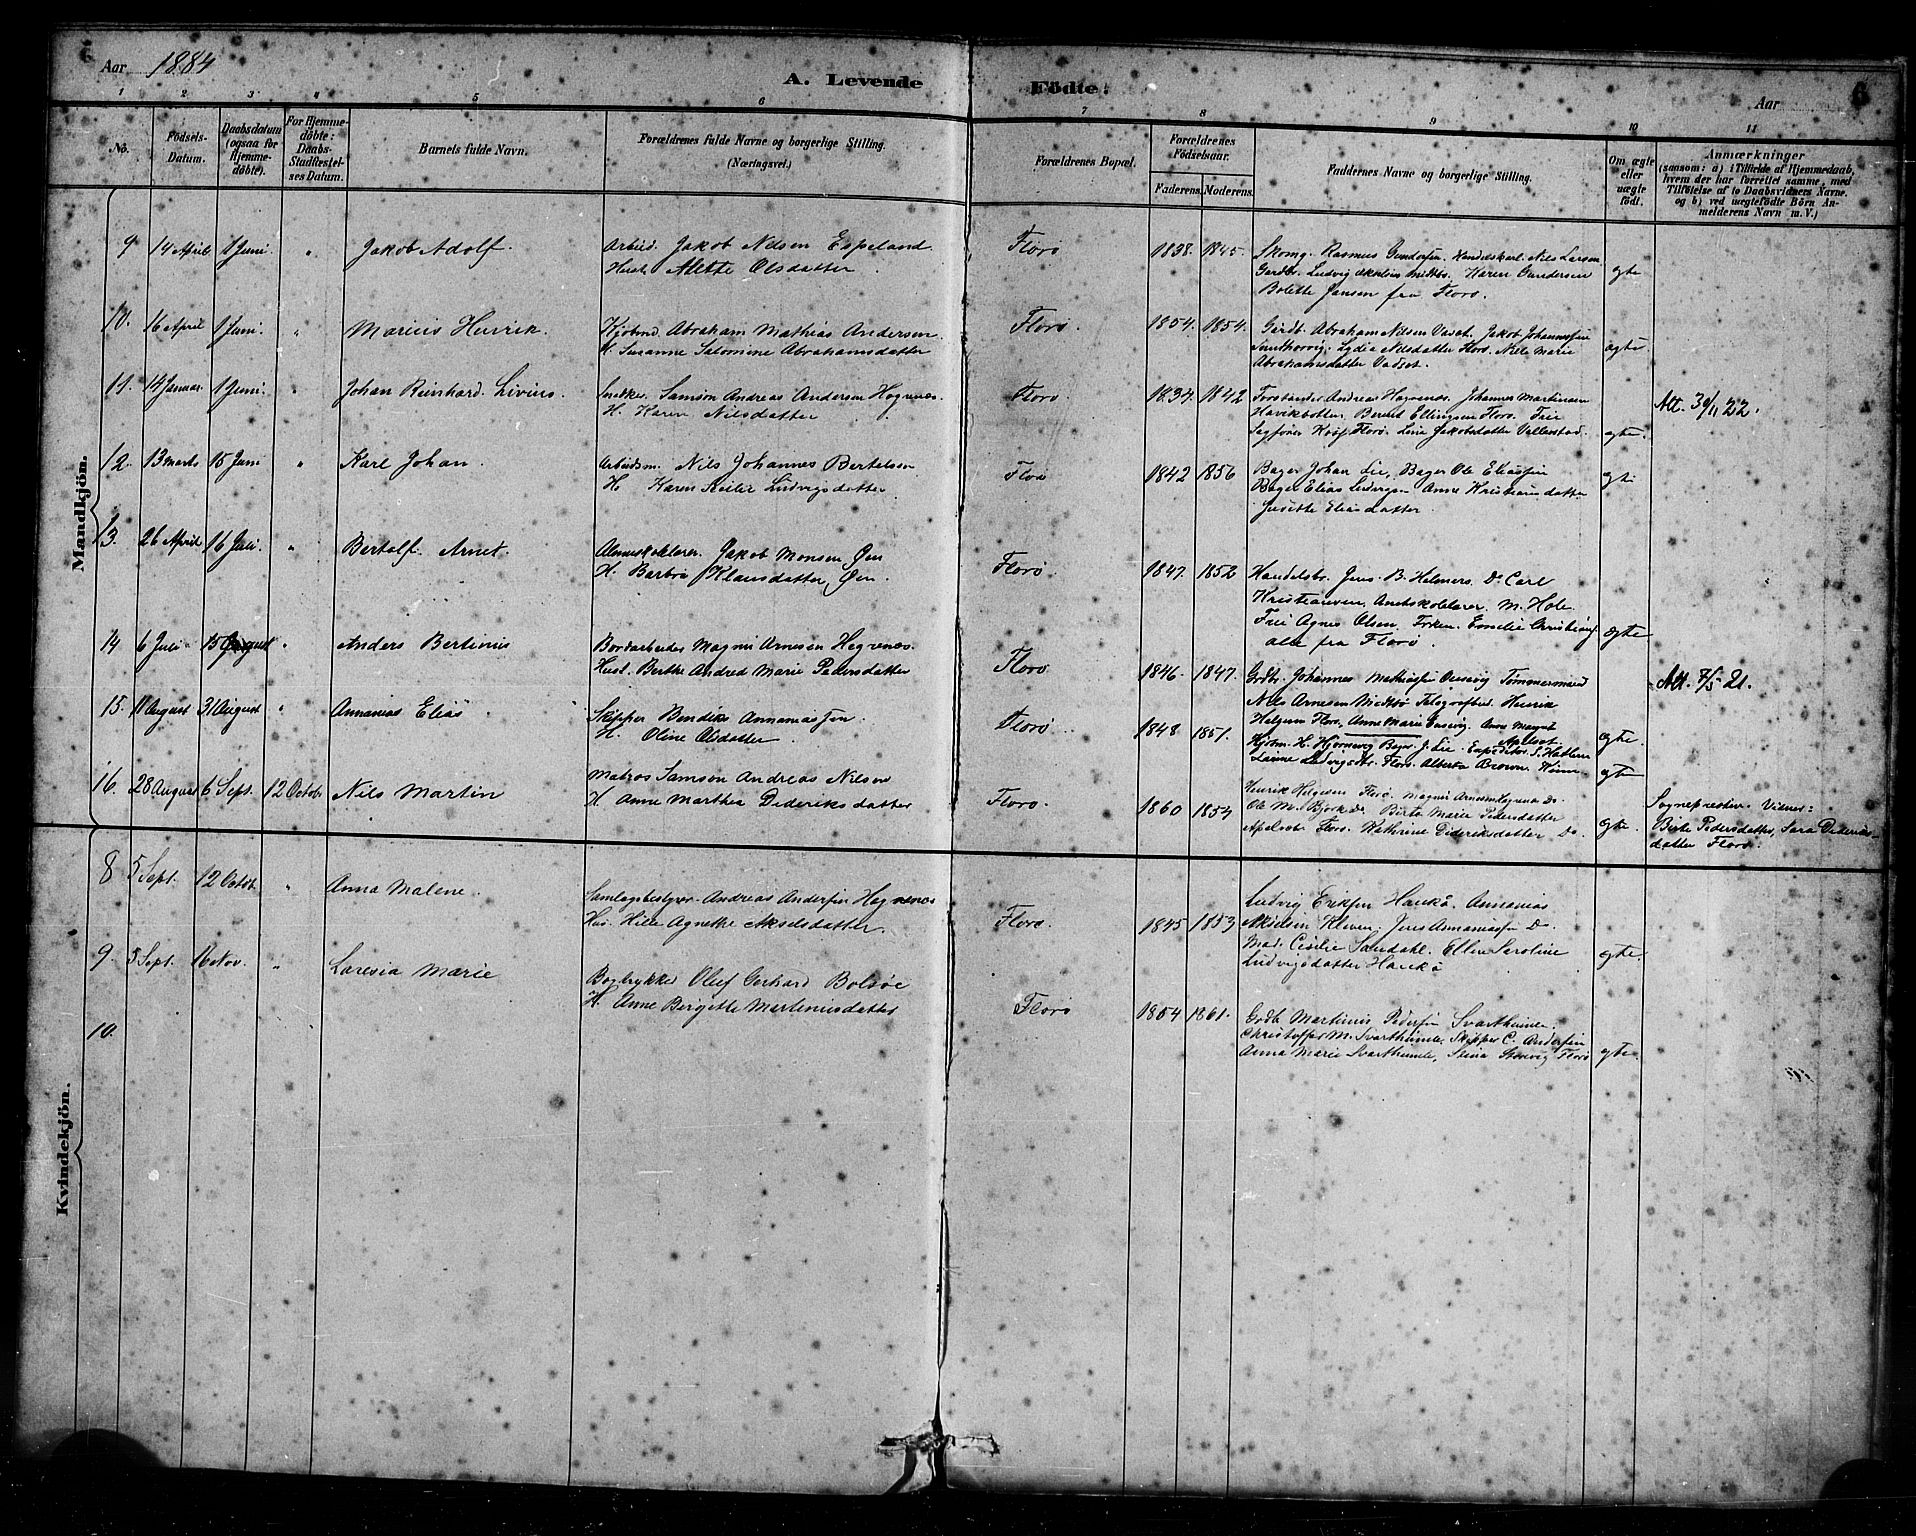 6
Aar 1884
A. Levende
Födte.
Aar
6
1 2 3 4 5 6 7 8 9 10 11
No.
Födsels-Datum.
Daabsdatum (ogsaa for Hjemme-döbte).
For Hjemme-döbte: Daabs-Stadfæstel-ses Datum.
Barnets fulde Navn.
Forældrenes fulde Navne og borgerlige Stilling. (Næringsvei.)
Forældrenes Bopæl.
Forældrenes Födselsaar.
Faderens. Moderens.
Faddernes Navne og borgerlige Stilling.
Om ægte eller uægte födt.
Anmærkninger
(saasom: a) i Tilfælde af Hjemmedaab, hvem der har forrettet samme, med Tilföielse af to Daabsvidners Navne. og b) ved uægtefödte Börn An-melderens Navn m. V.)
Mandkjön.
9 14 April 1 Juni " Jakob Adolf.
Arbeid. Jakob Nilsen Espeland
Hust. Alette Olsdatter
Florø 1838. 1845.
Skomg. Rasmus Gundersen, Handelskarl Nils Larsen
Gardbr. Ludvig Karen Gundersen
Bolette Jansen fra Florø.
gte
10. 16 April 1 Juni. " Marius Henrik.
Kjøbmd. Abraham Mathias Andersen
H. Susanne Salomine Abrahamsdatter
Florø. 1854. 1854.
Gardb. Abraham Nilsen Vadset. Jakob Johannessen
Lydia Nilsdatter Florø. Nils Marie
Abrahamsdatter Vadset.
ægte
11. 14 Januar. 1 Juni. " Johan Reinhard Livius.
Snedker Samson Andreas Andersen Hegrenæs.
H. Karen Nilsdatter
Florø 1834. 1842
Forstander Andreas Hegrenæs. Johannes Martinsen
Havikbotten, Berent Ellingsen Florø. Frue
Sagfører Florø. Line Jakobsdatter Vallestad.
ægte.
Att. 30/11 22.
12. 13 Marts 15 Juni " Karl Johan.
Arbeidsm. Nils Johannes Bertelsen
H. Karen Ludvigsdatter
Florø 1842 1856
Bager Johan Lie, Bager Ole Eliassen
Bager Elias Ludvigsen Anne Kristiansdatter
Eliasdatter.
gte
13. 26 April 16 Juli. " Bertolf Arnet.
Almueskolelærer. Jakob Monsen Øen
H. Barbro Klausdatter Øen.
Florø. 1847. 1852
Handelsbr. Jens B. Helmers. Do Carl
Kristiansen, Amtskolelærer M. Hole
Frue Agnes Olsen. Frøken Emelie Christians
alle fra Florø.
ægte
14 6 Juli 15 August " Anders Bertinius
Bordarbeider Magni Arnesen Hegrenæs.
Hust. Berthe Andrea Marie Pedersdatter
Florø 1846. 1847.
Johannes Mathiassen Tømmermand
Nils Arnesen Midtbø Telegrafbud. Henrik
Helgesen Florø. Anne Marie Anne Magret
Apelset
ægte.
Att. 7/5 21.
15. 11 August 31 August " Annanias Elias
Skipper Bendiks Annaniassen.
H. Oline Olsdatter.
Florø. 1848 1851.
Kjøbm. H. Hjørnevig Bager J. Lie. Expeditør S. Hatlem
Ludvigsdtr. Florø. Alberta Brown Kinn
gte
16. 28 August 6 Sept. 12 Octobr Nils Martin
Matros Samson Andreas Nilsen
H. Anne Marthea Dideriksdatter
Florø. 1860 1854
Henrik Helgesen Florø. Magni Arnesen Hegrenæs Do.
Ole M. Bjørk Do. Birte Marie Pedersdatter
Apelset Florø. Kathrine Dideriksdatter Do.
gte.
Sognepræsten. Vidner:
Birte Pedersdatter, Sara Dideriks-
datter Florø.
Kvindekjön.
8 5 Sept. 12 Octob. " Anna Malene.
Samlagsbestyrer Andreas Andersen Hegrenæs
Hus. Hille Agnethe Akselsdatter.
Florø. 1845 1853
Ludvig Eriksen Haukø. Annanias
Akselsen Kleven. Jens Annaniassen Do.
Mad. Cecilie Sandahl. Ellen Saroline
Ludvigsdatter Haukø
gte.
9. 5 Sept. 16 Nov. " Laresia Marie
Bogtrykker Oluf Gerhard Bolsøe
H. Anne Bergitte Martinusdatter
Florø 1854 1861.
Martinus Pedersen Svarthumle.
Christoffer M. Svarthumle, Skipper C. Andersen
Anna Marie Svarthumle, Stina Florø
gte.
10.